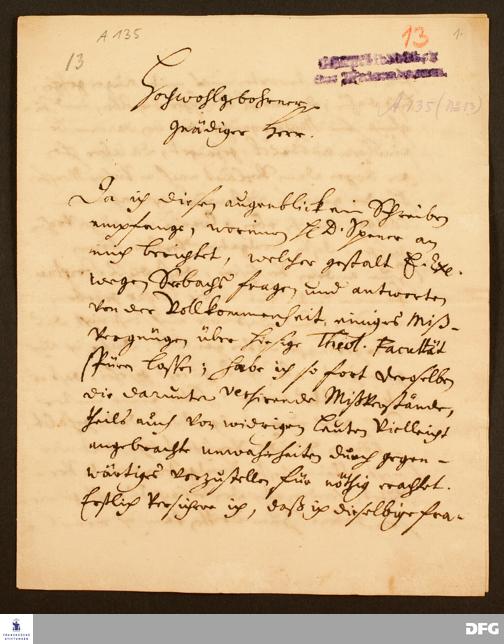 A 135
13
13
1.
A 135 (N:13)
Hochwohlgebohrner
Gnädiger Herr.
Da ich diesen augenblick ein Schreiben
empfange, worinnen H. D. Spener an
mich berichtet, welcher gestalt E. Exc.
wegen Seebachs fragen und antworten
von der Vollkommenheit, einiges Miß-
vergnügen über hiesige Theol. Facultät
spüren lassen; habe ich so fort derselben
die darunter versirende Mißverstände,
theils auch von widrigen leuten vielleicht
angebrachte unwahrheiten durch gegen-
wärtiges vorzustellen für nöthig erachtet.
Erstlich versichere ich, daß ich dieselbige fra-
FRANCKESCHE
STIFTUNGEN
DFG